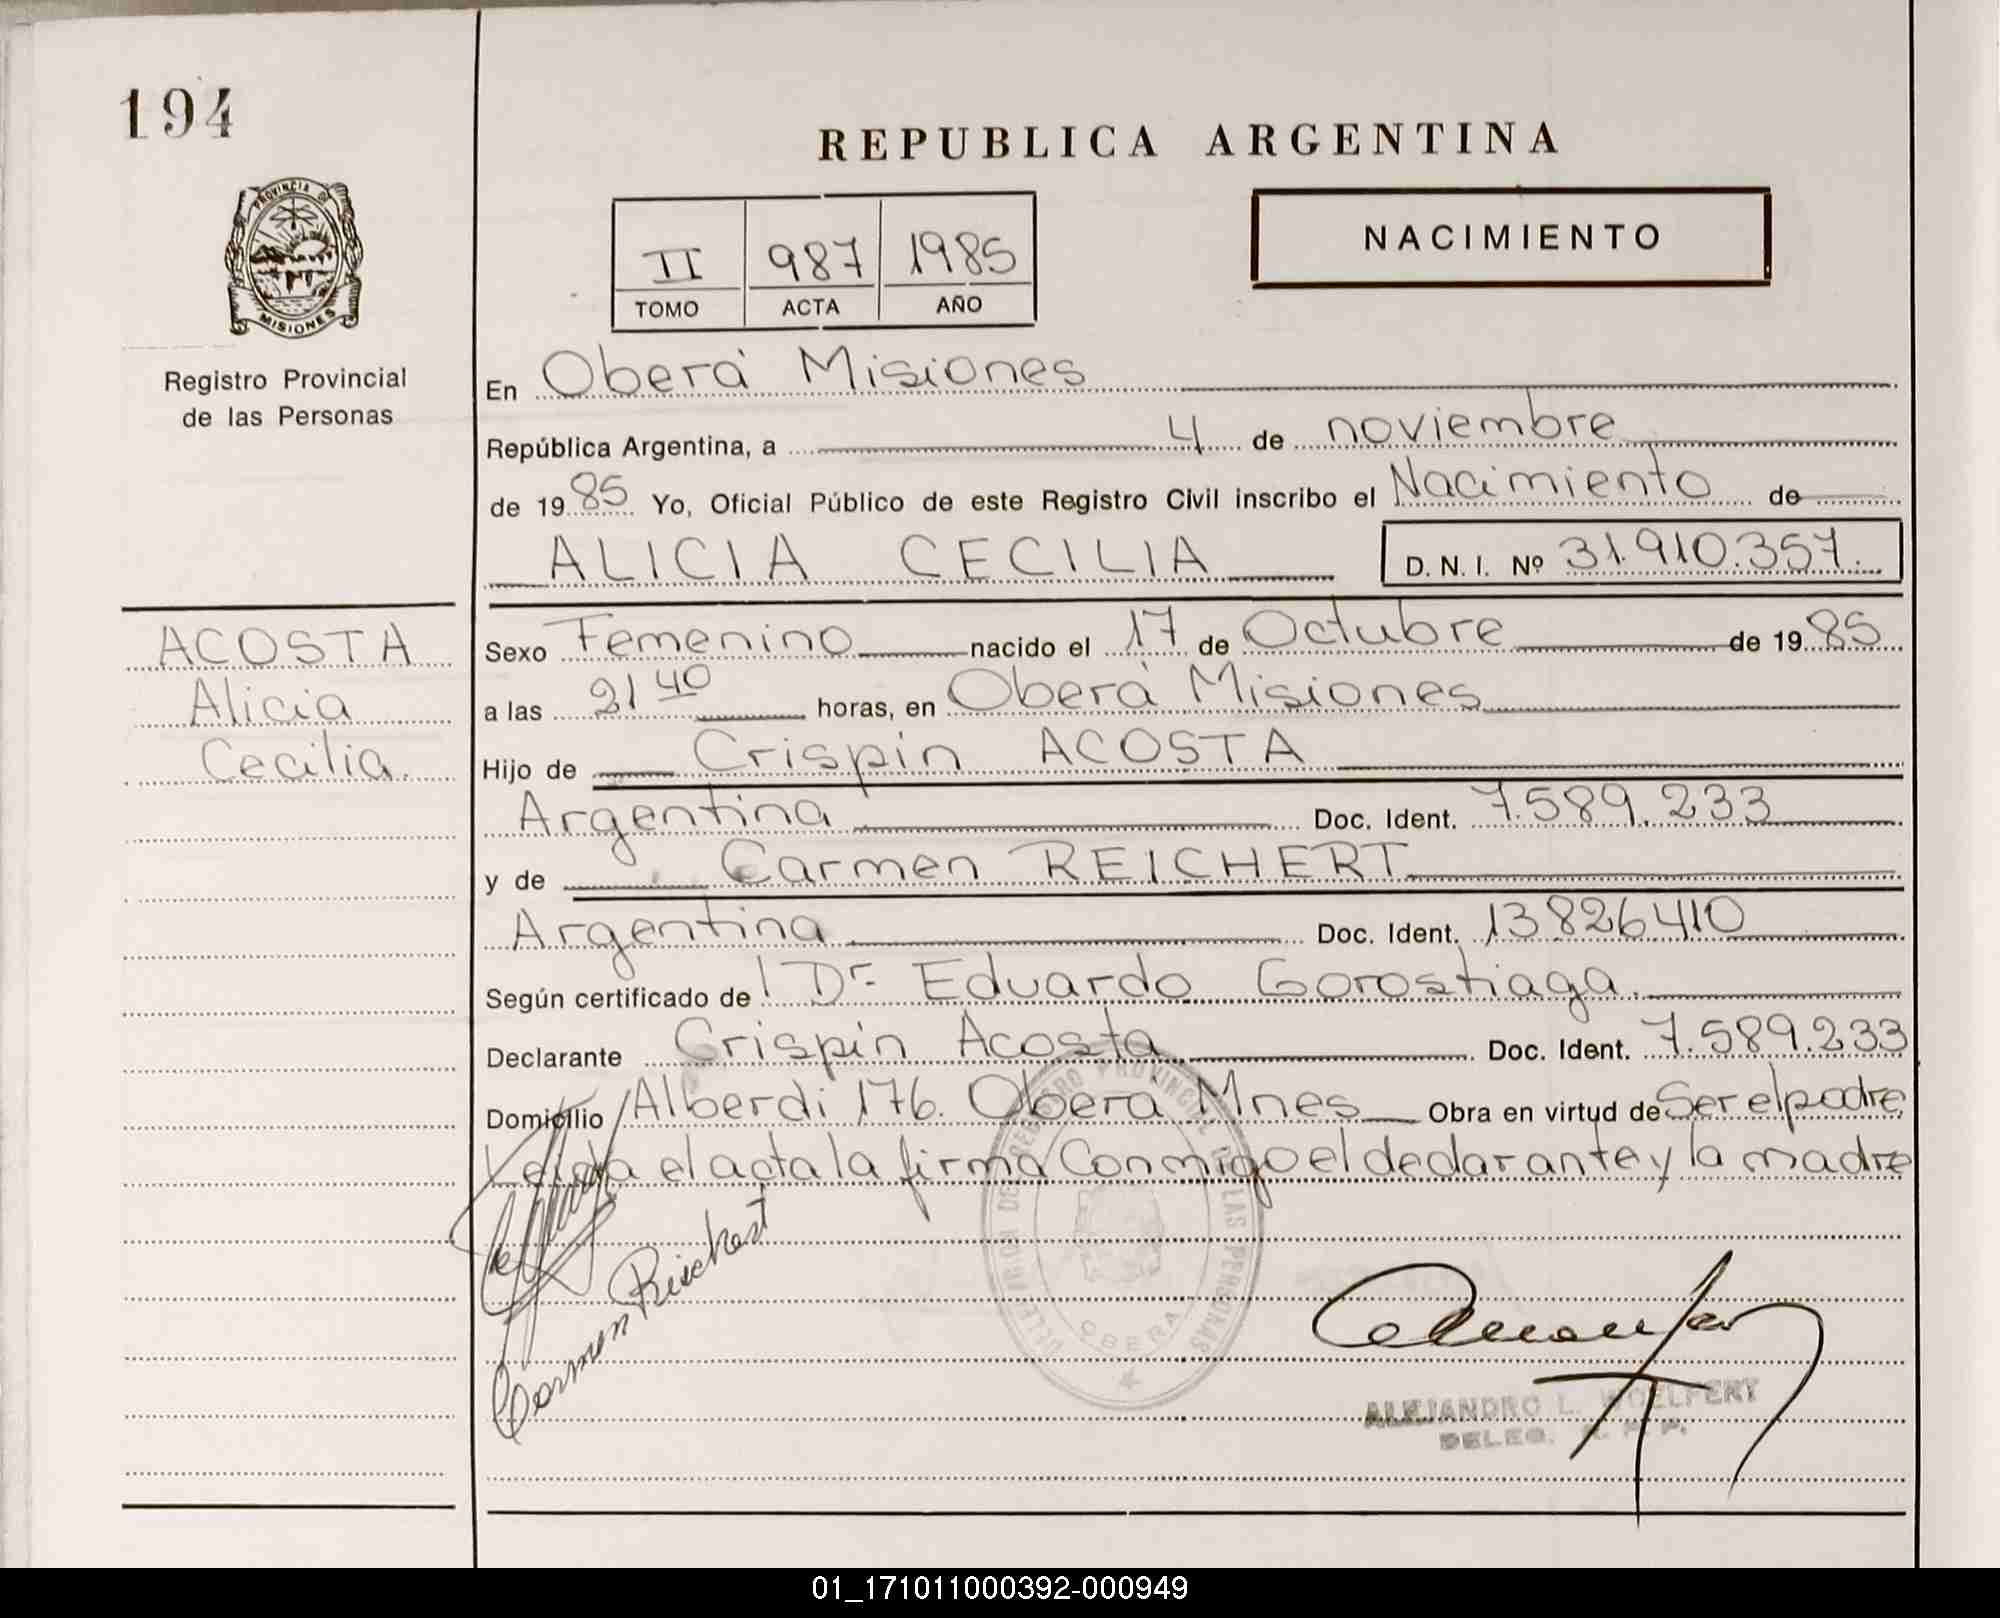 194
REPUBLICA ARGENTINA
PROVINCIA DE
MISIONES
II 987 1985
TOMO ACTA AÑO
NACIMIENTO
Registro Provincial
de las Personas
En Oberá Misiones
República Argentina, a 4 de noviembre
de 1985 Yo, Oficial Público de este Registro Civil inscribo el Nacimiento de
ALICIA CECILIA D. N. I. Nº 31.910.357.
ACOSTA
Alicia
Cecilia.
Sexo Femenino nacido el 17 de Octubre de 1985
a las 21 40 horas, en Oberá Misiones
Hijo de Crispín ACOSTA
Argentina Doc. Ident. 7.589.233
y de Carmen REICHERT
Argentina Doc. Ident. 13826410
Según certificado de Dr. Eduardo Gorostiaga.
Declarante Crispín Acosta Doc. Ident. 7.589.233
Domicilio Alberdi 176. Oberá Mnes Obra en virtud de Ser el padre
Leida el acta la firma Conmigo el declarante y la madre
Carmen Reichert
REGISTRO PROVINCIAL DE LAS PERSONAS
OBERA
ALEJANDRO L. WOELFERT
DELEG. R. P. P.
01_171011000392-000949